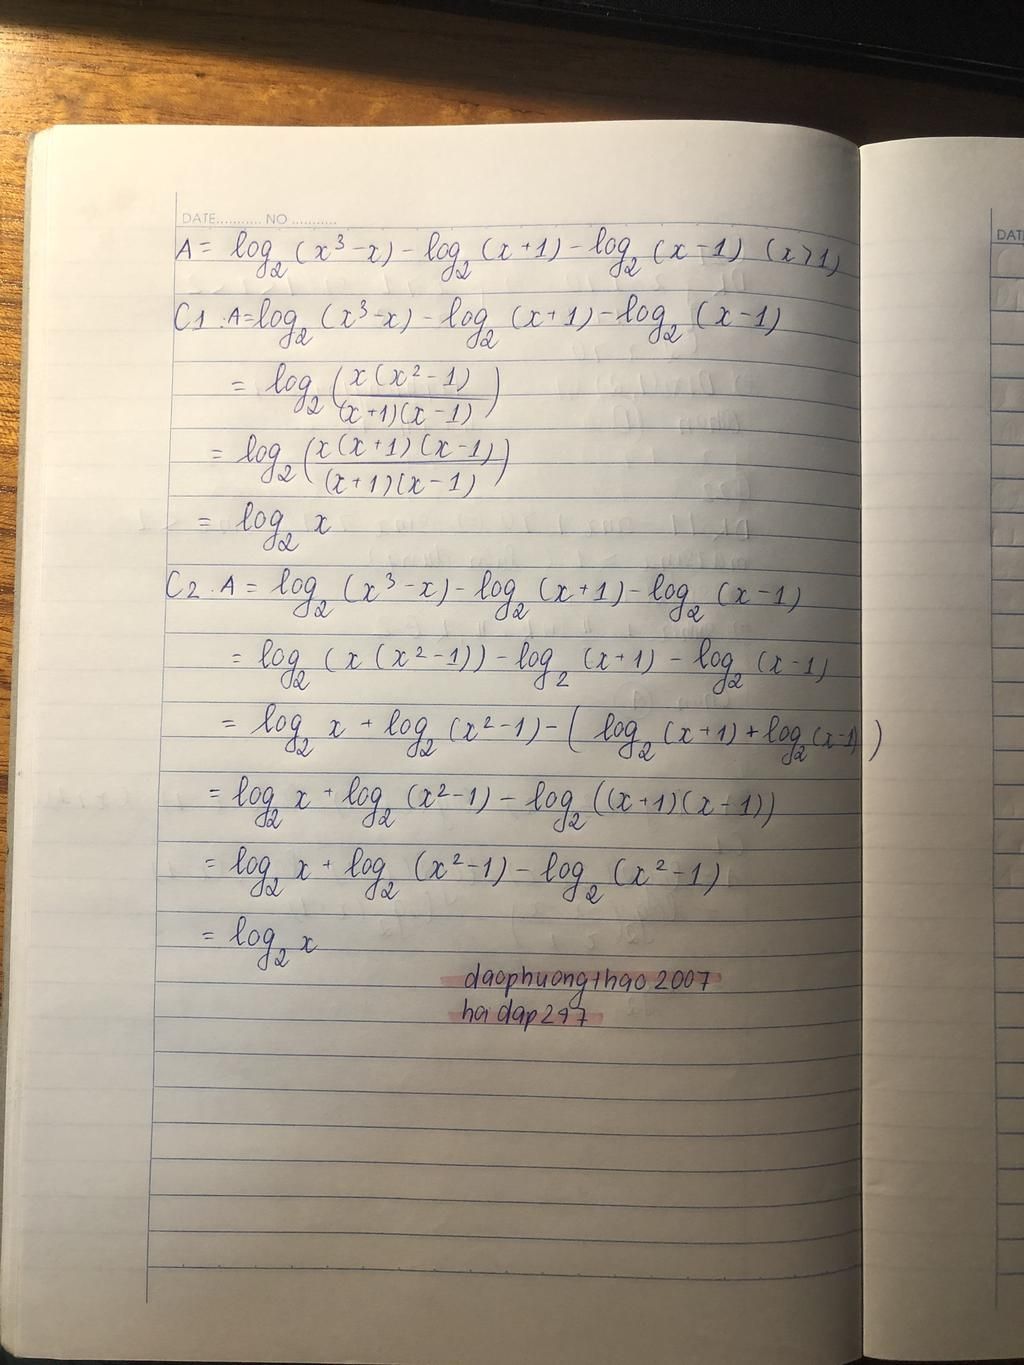 DATE........... NO ...........
A = log₂ (x³ - x) - log₂ (x + 1) - log₂ (x - 1) (x > 1)
C1. A = log₂ (x³ - x) - log₂ (x + 1) - log₂ (x - 1)
= log₂ (x(x² - 1) / (x + 1)(x - 1))
= log₂ (x(x + 1)(x - 1) / (x + 1)(x - 1))
= log₂ x
C2. A = log₂ (x³ - x) - log₂ (x + 1) - log₂ (x - 1)
= log₂ (x (x² - 1)) - log₂ (x + 1) - log₂ (x - 1)
= log₂ x + log₂ (x² - 1) - ( log₂ (x + 1) + log₂ (x - 1) )
= log₂ x + log₂ (x² - 1) - log₂ ((x + 1)(x - 1))
= log₂ x + log₂ (x² - 1) - log₂ (x² - 1)
= log₂ x
daophuongthao2007
hoidap247
DATE